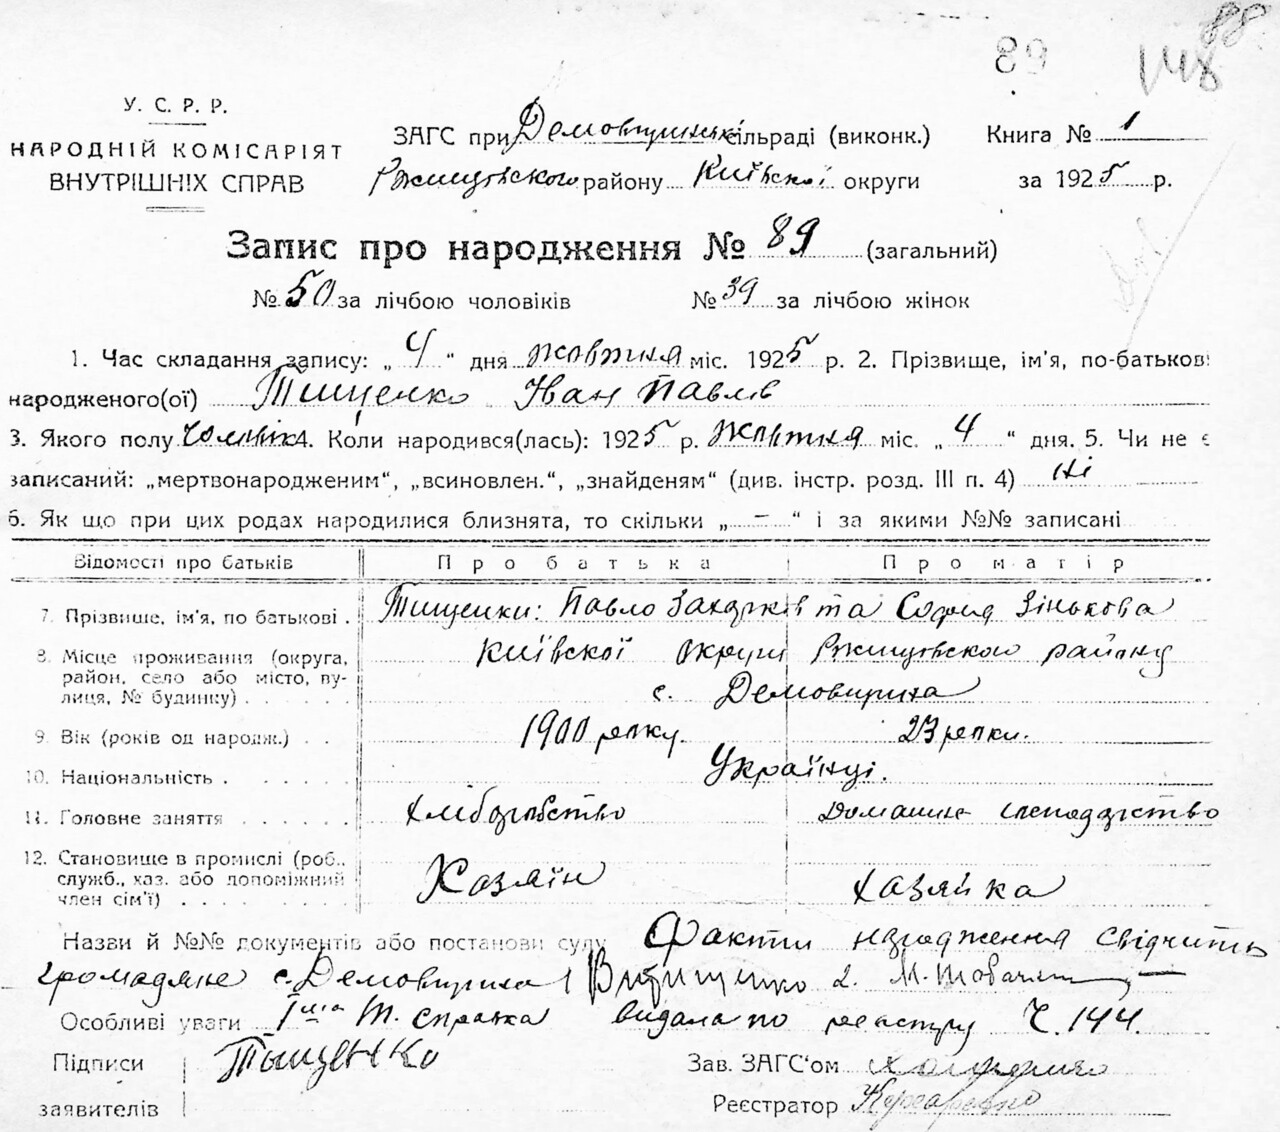 88
89 148
У. С. Р. Р.
НАРОДНІЙ КОМІСАРІЯТ
ВНУТРІШНІХ СПРАВ
ЗАГС при Демовщинській сільраді (виконк.) Книга № 1
Ржищівського району Київської округи за 1925 р.
Запис про народження № 89 (загальний)
№ 50 за лічбою чоловіків № 39 за лічбою жінок
1. Час складання запису: „ 4 “ дня жовтня міс. 1925 р. 2. Прізвище, ім'я, по-батькові
народженого(ої) Тищенко Іван Павлів
3. Якого полу чоловік 4. Коли народився(лась): 1925 р. жовтня міс. „ 4 “ дня. 5. Чи не є
записаний: „мертвонародженим“, „всиновлен.“, „знайденям“ (див. інстр. розд. III п. 4) ні
6. Як що при цих родах народилися близнята, то скільки „ – “ і за якими №№ записані
Відомості про батьків Про батька Про матір
7. Прізвище, ім'я, по батькові . Тищенки: Павло Захарків та София Зінькова
8. Місце проживання (округа, район, село або місто, вулиця, № будинку) Київскої округи Ржищівского району
с. Демовщина
9. Вік (років од народж.) . . 1900 репку. 23 репки.
10. Національність . . . . . . Українці.
11. Головне заняття . . . . . . хліборобство домашне господарство
12. Становище в промислі (роб.,
служб., хаз. або допоміжний
член сім'ї) . . . . . . . . Хазяїн хазяйка
Назви й №№ документів або постанови суду Факти народження свідчить
громадяне с. Демовщина 1 2. М.
Особливі уваги Т. справка видала по реестру Ч. 144.
Підписи Тыщенко Зав. ЗАГС'ом
заявителів Реєстратор